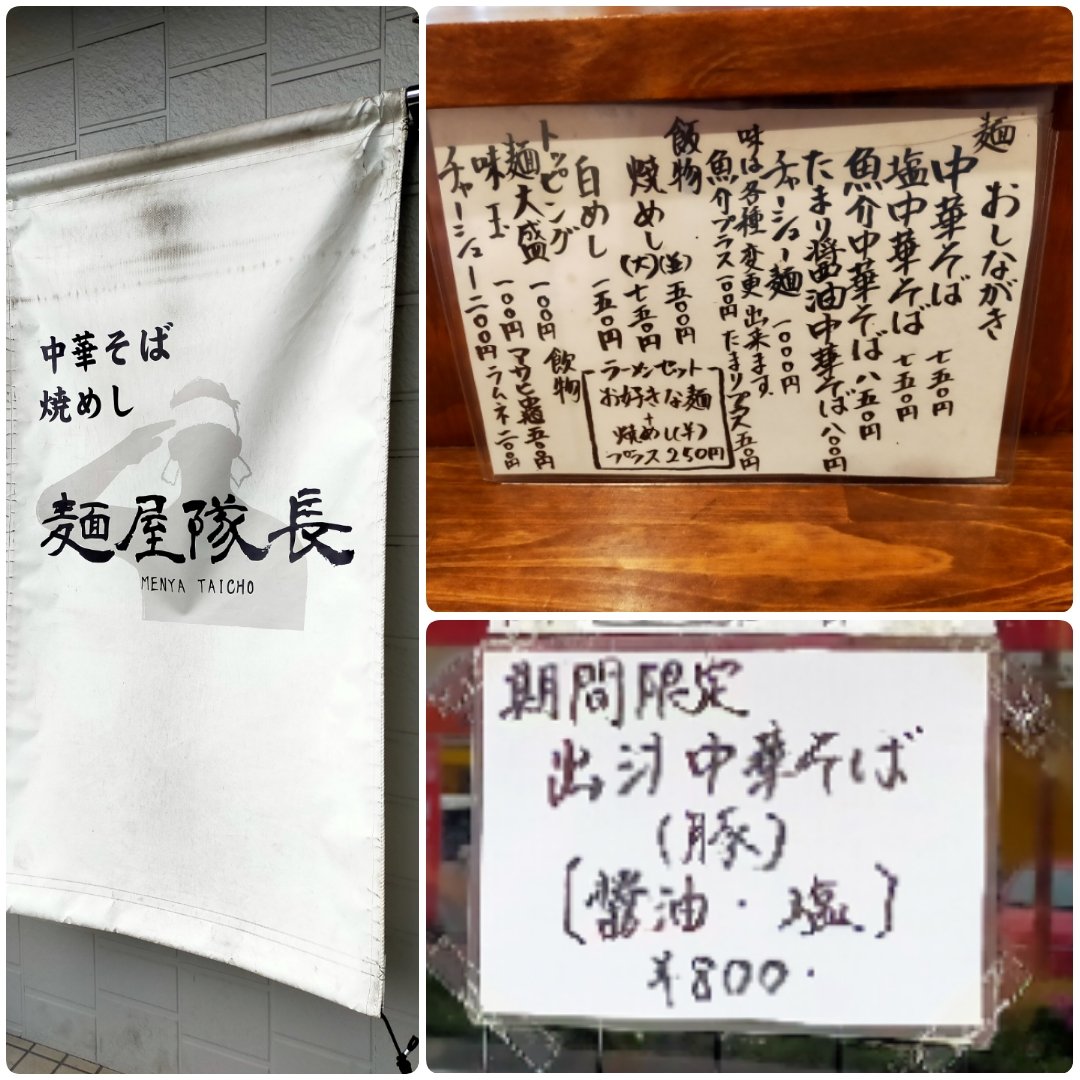 中華そば
焼めし
麺屋隊長
MENYA TAICHO
おしながき
麺
中華そば 七五〇円
塩中華そば 七五〇円
魚介中華そば 八五〇円
たまり醤油中華そば 八〇〇円
チャーシュー麺 一〇〇〇円
味は各種変更出来ます。
魚介プラス一〇〇円 たまりプラス五〇円
飯物
焼めし(並)五〇〇円
(大)七五〇円
白めし 一五〇円
トッピング
麺大盛 一〇〇円
味玉 一〇〇円
チャーシュー 二〇〇円
飲物
ラムネ 二〇〇円
ラーメンセット
お好きな麺
+
焼めし(半)
プラス250円
期間限定
出汁中華そば
(豚)
[醤油・塩]
¥800.